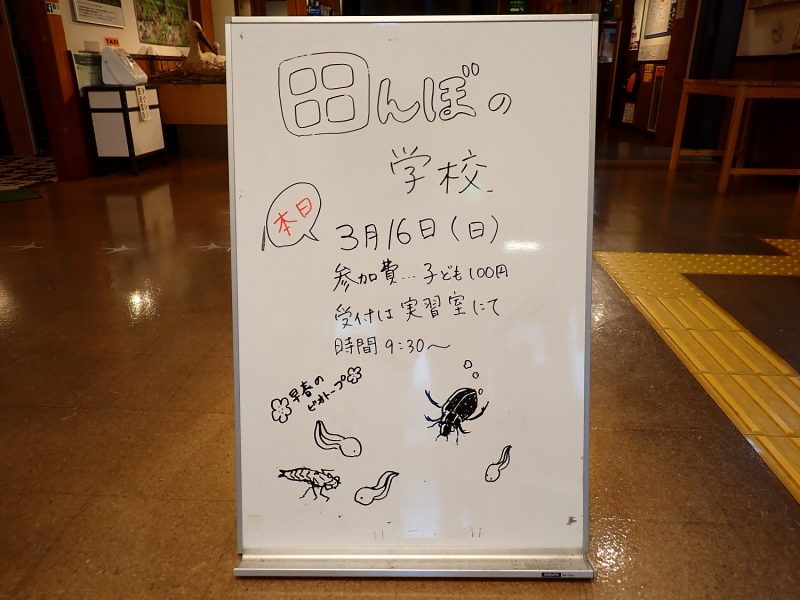 田んぼの
学校
本日
3月16日(日)
参加費…子ども100円
受付は実習室にて
時間9:30〜
早春の
ビオトープ
TAXI